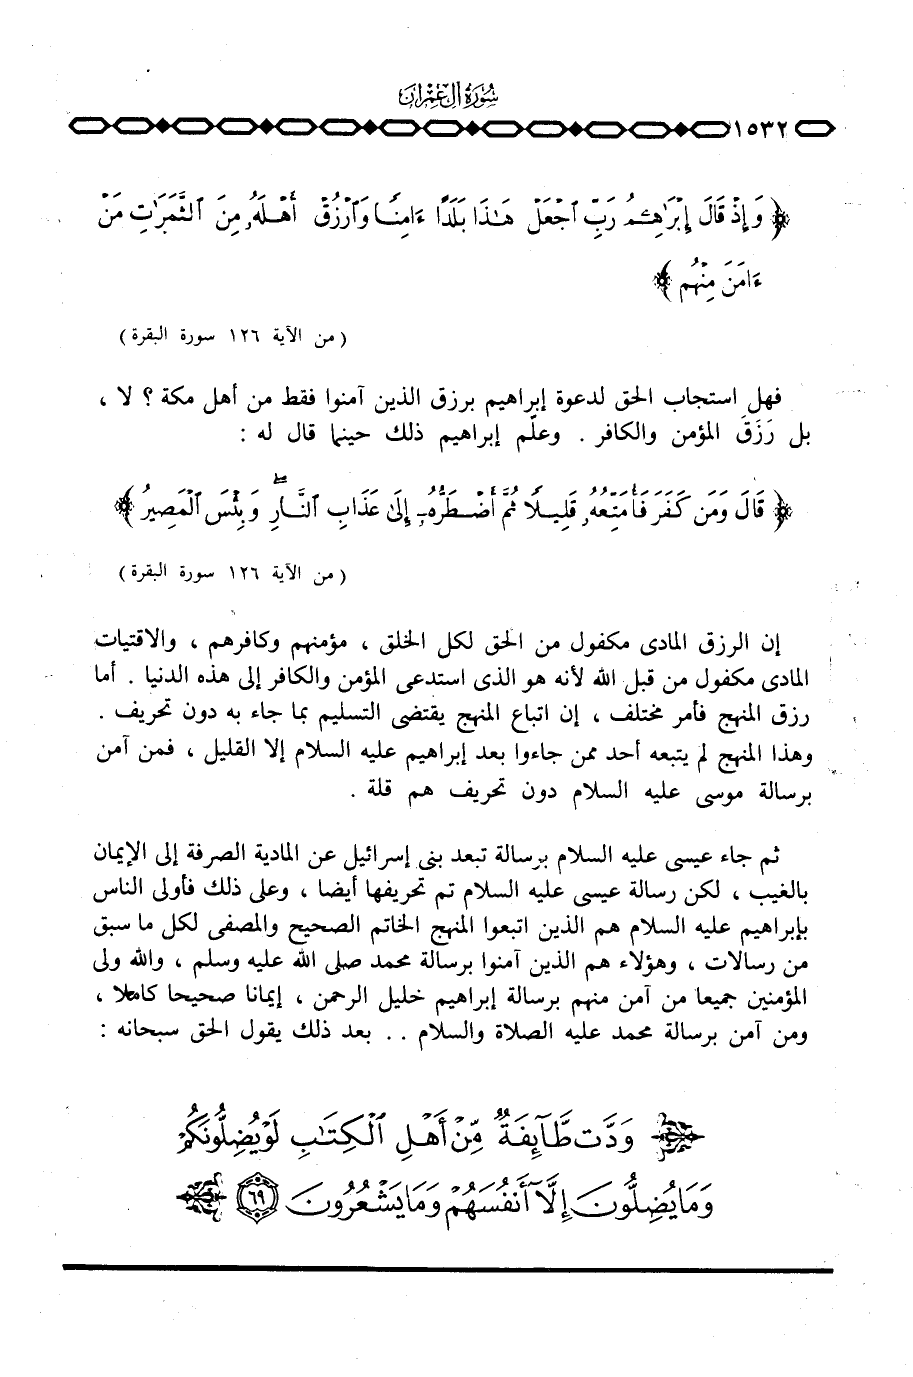 سُورَةُ آلِ عِمْرَانَ
١٥٣٢
﴿ وَإِذْ قَالَ إِبْرَٰهِـۧمُ رَبِّ ٱجْعَلْ هَٰذَا بَلَدًا ءَامِنًا وَٱرْزُقْ أَهْلَهُۥ مِنَ ٱلثَّمَرَٰتِ مَنْ
ءَامَنَ مِنْهُم ﴾
( من الآية ١٢٦ سورة البقرة )
فهل استجاب الحق لدعوة إبراهيم برزق الذين آمنوا فقط من أهل مكة ؟ لا ،
بل رَزَقَ المؤمن والكافر . وعلّم إبراهيم ذلك حينما قال له :
﴿ قَالَ وَمَن كَفَرَ فَأُمَتِّعُهُۥ قَلِيلًا ثُمَّ أَضْطَرُّهُۥٓ إِلَىٰ عَذَابِ ٱلنَّارِ ۖ وَبِئْسَ ٱلْمَصِيرُ ﴾
( من الآية ١٢٦ سورة البقرة )
إن الرزق المادى مكفول من الحق لكل الخلق ، مؤمنهم وكافرهم ، والاقتيات
المادى مكفول من قبل الله لأنه هو الذى استدعى المؤمن والكافر إلى هذه الدنيا . أما
رزق المنهج فأمر مختلف ، إن اتباع المنهج يقتضى التسليم بما جاء به دون تحريف .
وهذا المنهج لم يتبعه أحد ممن جاءوا بعد إبراهيم عليه السلام إلا القليل ، فمن آمن
برسالة موسى عليه السلام دون تحريف هم قلة .
ثم جاء عيسى عليه السلام برسالة تبعد بنى إسرائيل عن المادية الصرفة إلى الإيمان
بالغيب ، لكن رسالة عيسى عليه السلام تم تحريفها أيضا ، وعلى ذلك فأولى الناس
بإبراهيم عليه السلام هم الذين اتبعوا المنهج الخاتم الصحيح والمصفى لكل ما سبق
من رسالات ، وهؤلاء هم الذين آمنوا برسالة محمد صلى الله عليه وسلم ، والله ولى
المؤمنين جميعا من آمن منهم برسالة إبراهيم خليل الرحمن ، إيمانا صحيحا كاملا ،
ومن آمن برسالة محمد عليه الصلاة والسلام . . بعد ذلك يقول الحق سبحانه :
﴿ وَدَّت طَّآئِفَةٌ مِّنْ أَهْلِ ٱلْكِتَٰبِ لَوْ يُضِلُّونَكُمْ
وَمَا يُضِلُّونَ إِلَّآ أَنفُسَهُمْ وَمَا يَشْعُرُونَ ٦٩ ﴾